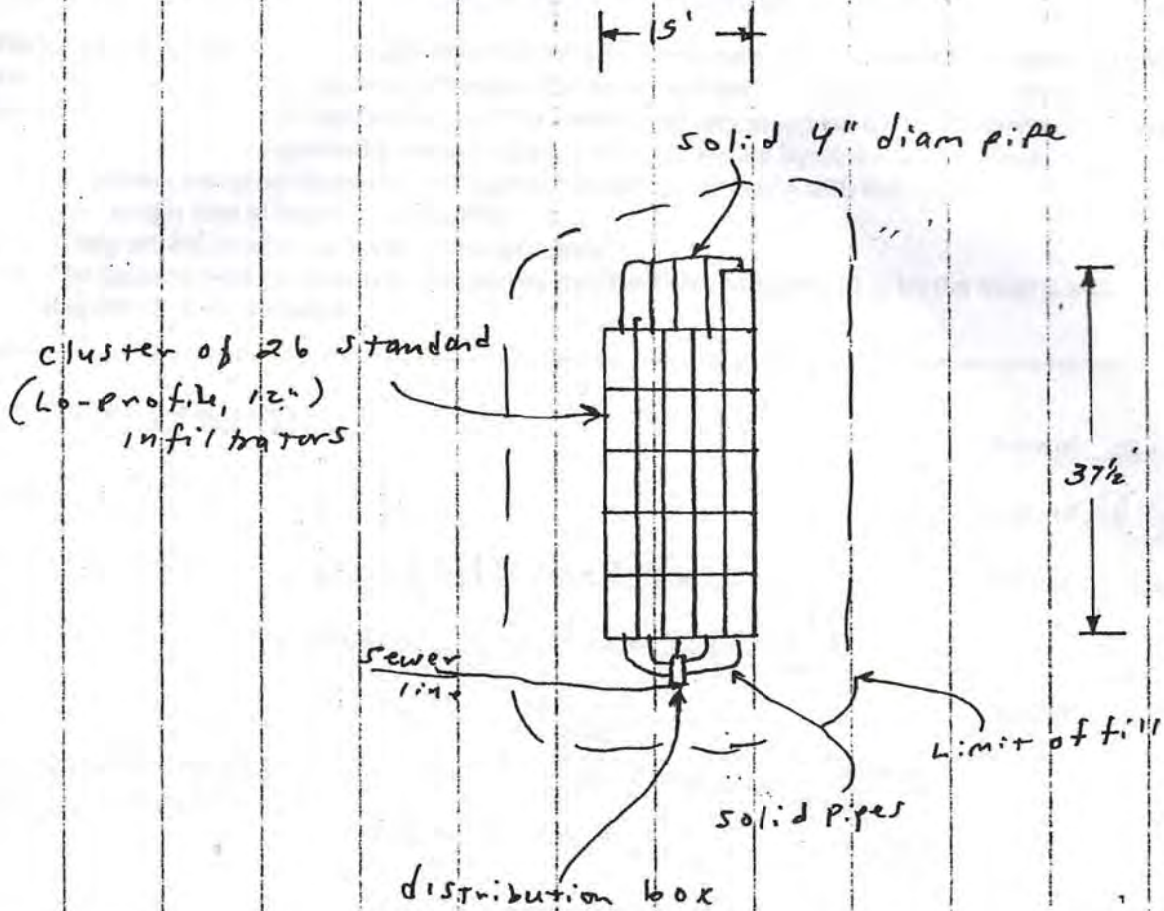 15'
solid 4" diam pipe
cluster of 26 standard
(Lo-profile, 12")
infiltrators
37½'
sewer
line
Limit of fill
solid pipes
distribution box